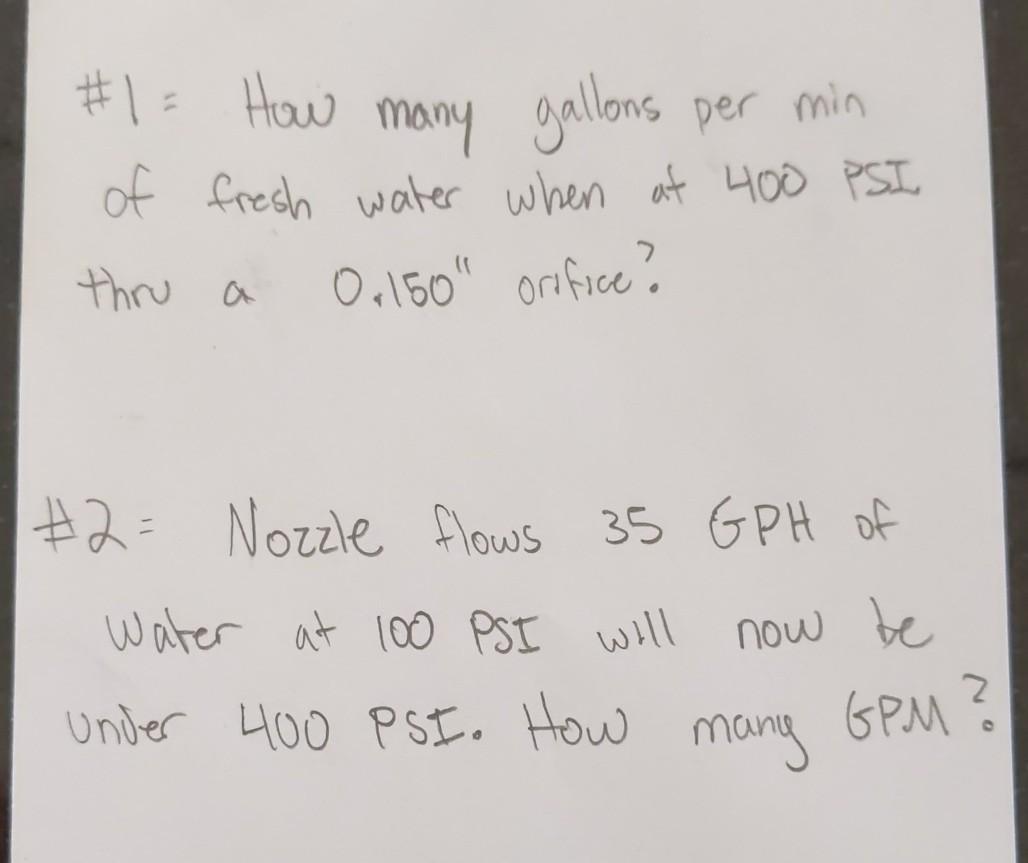 #1= How many gallons per min
of fresh water when at 400 PSI
thru a 0.150" orifice?
#2= Nozzle flows 35 GPH of
Water at 100 PSI will now be
under 400 PSI. How many GPM?